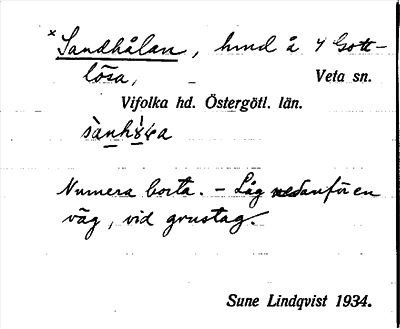 × Sandhålan, hmd å 4 Gott-
lösa, Veta sn.
Vifolka hd. Östergötl. län.
Numera borta. - Låg nedanför en
väg, vid grustag.
Sune Lindqvist 1934.